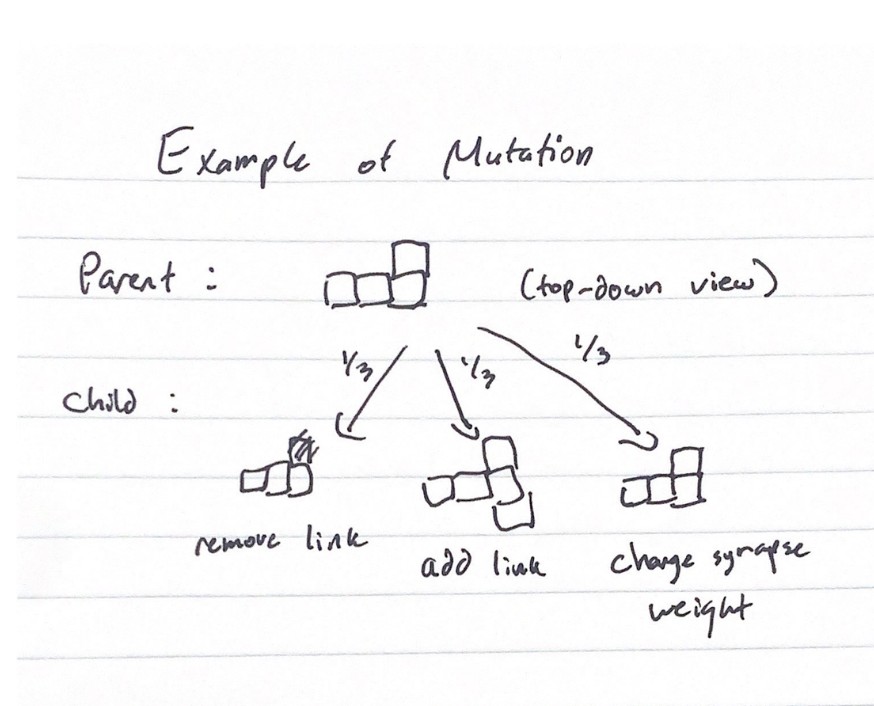 Example of Mutation
Parent : (top-down view)
1/3 1/3 1/3
Child :
remove link
add link
change synapse
weight